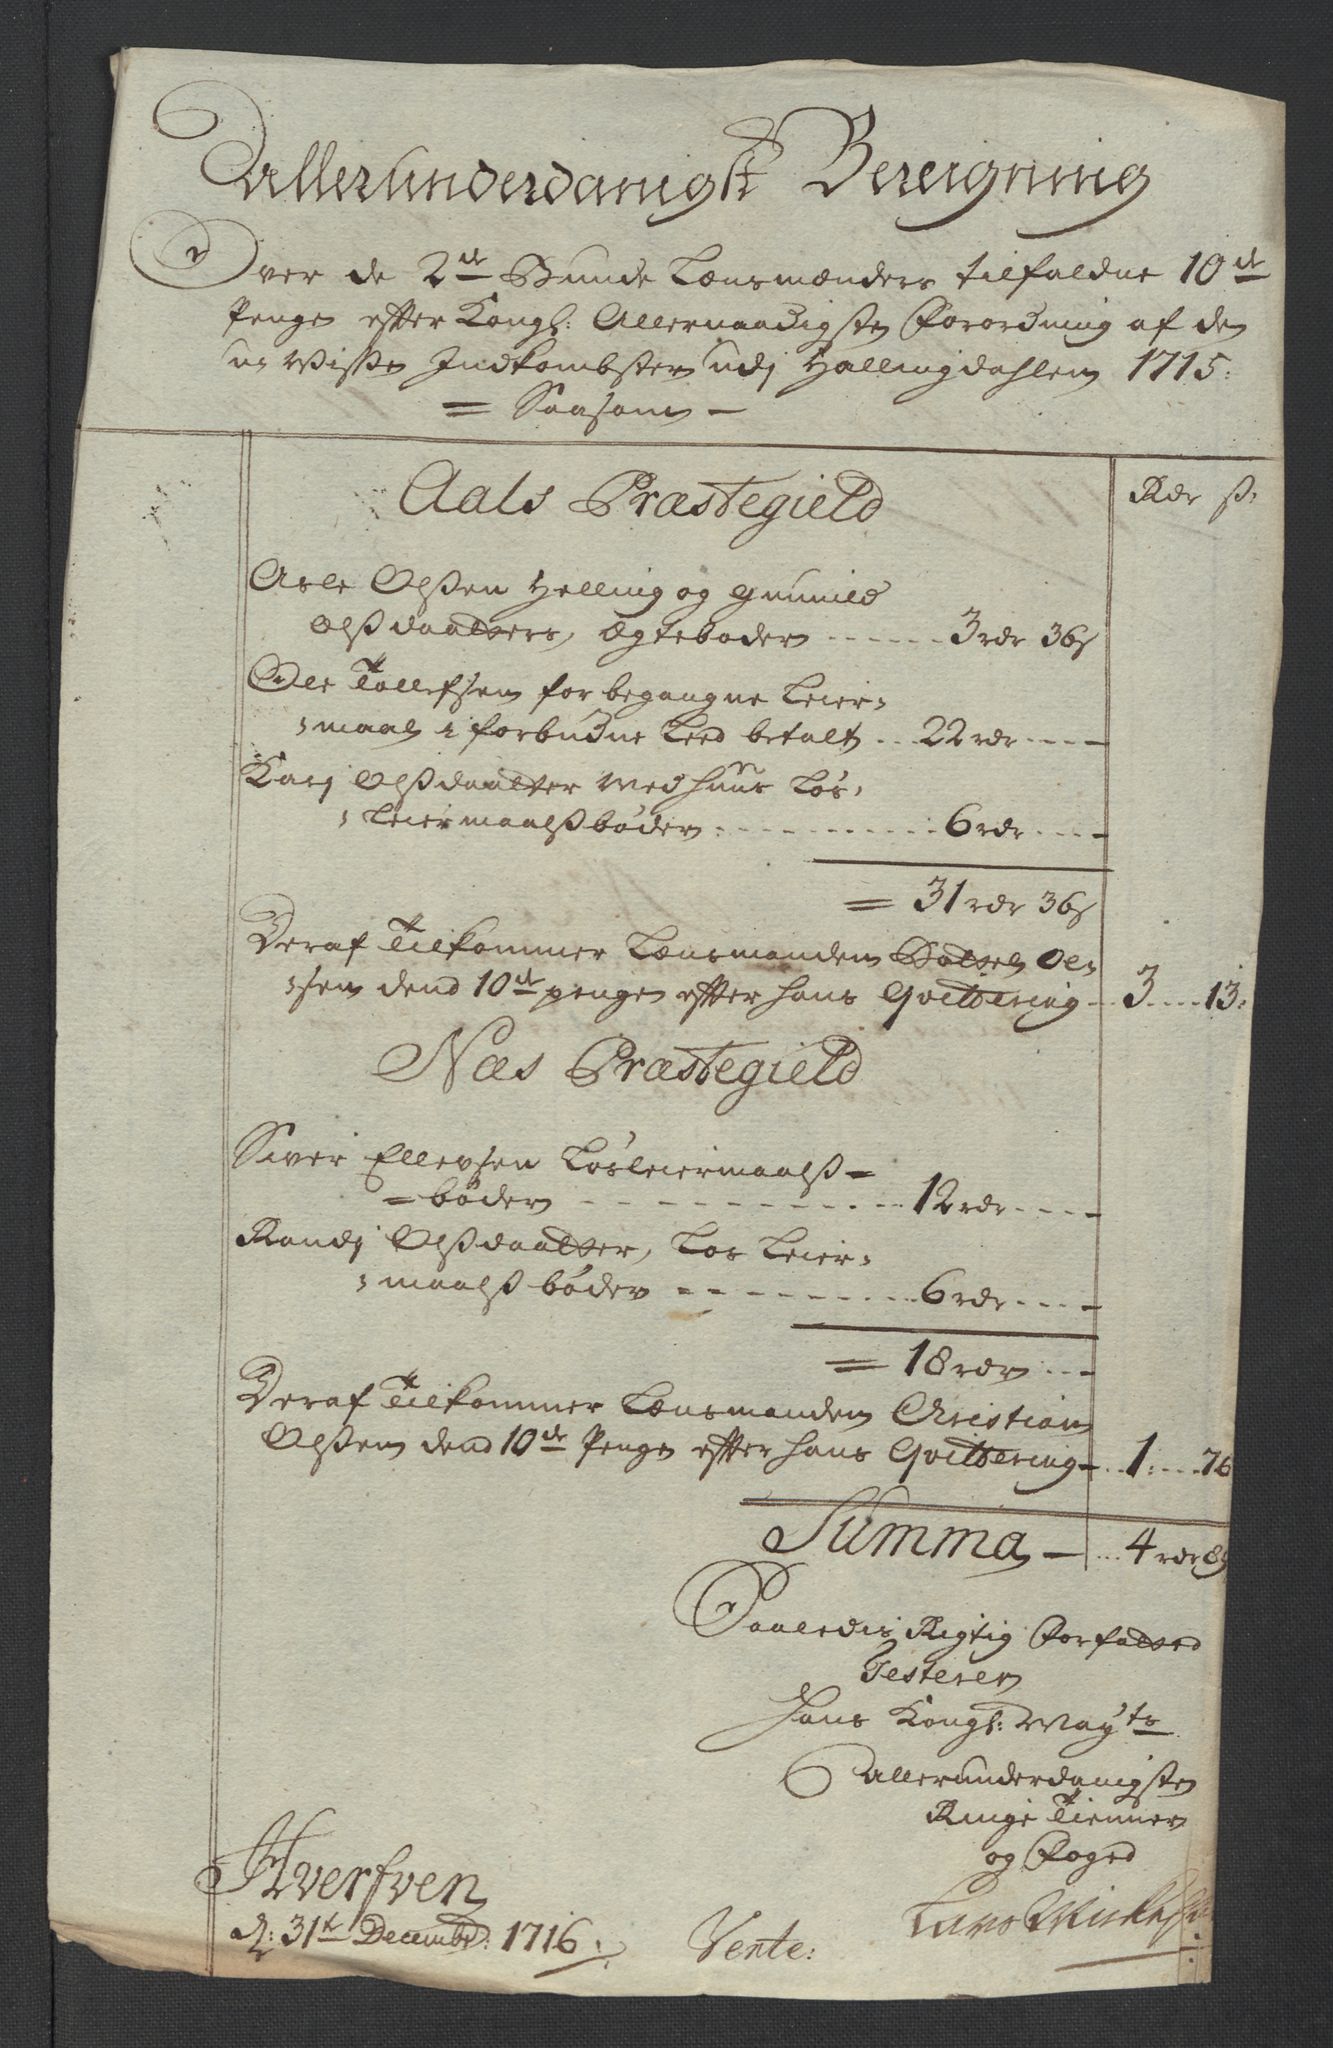 Allerunderdanigst Beregning
Over de 2de Bunde Lænsmænders tilfaldne 10de
Penge efter Kongl: Allernaadigste Forordning af den
u-visse Indkombster udj Hallingdahlen 1715:
= Saasom –
Aals Præstegield
Rdr ß:
Asle Olßen Helling og Gunnild
Olßdaatters, Ægtebøder ------ 3 rdr 36 ß
Ole Tollefsen for begangne Leier-
-maal i forbudne Leed betalt .. 22 rdr ----
Karj Olßdaatter ved huus Løs-
-Leiermaalß bøder ------------ 6 rdr ----
= 31 rdr 36 ß
Deraf Tilkommer Lænsmanden Ol-
-sen dend 10de penge efter hans Qvittering --- 3 ---- 13:
Næs Præstegield
Siver Ellevsen Løsleiermaalß =
= bøder ------------ 12 rdr ----
Randj Olßdaatter, Løs Leier-
-maalß bøder ---------- 6 rdr ----
= 18 rdr ---
Deraf Tilkommer Lænsmanden Christian
Olßen dend 10de Penge efter hans Qvittering --- 1: ---- 76
Summa – ... 4 rdr 89
Saaledis Rigtig Forfatted
Testerer
Hans Kongl: Mayts
Allerunderdanigste
Ringe Tienner
og Foged
Hverfven
d: 31te Decembr: 1716.
Vente:
Lars